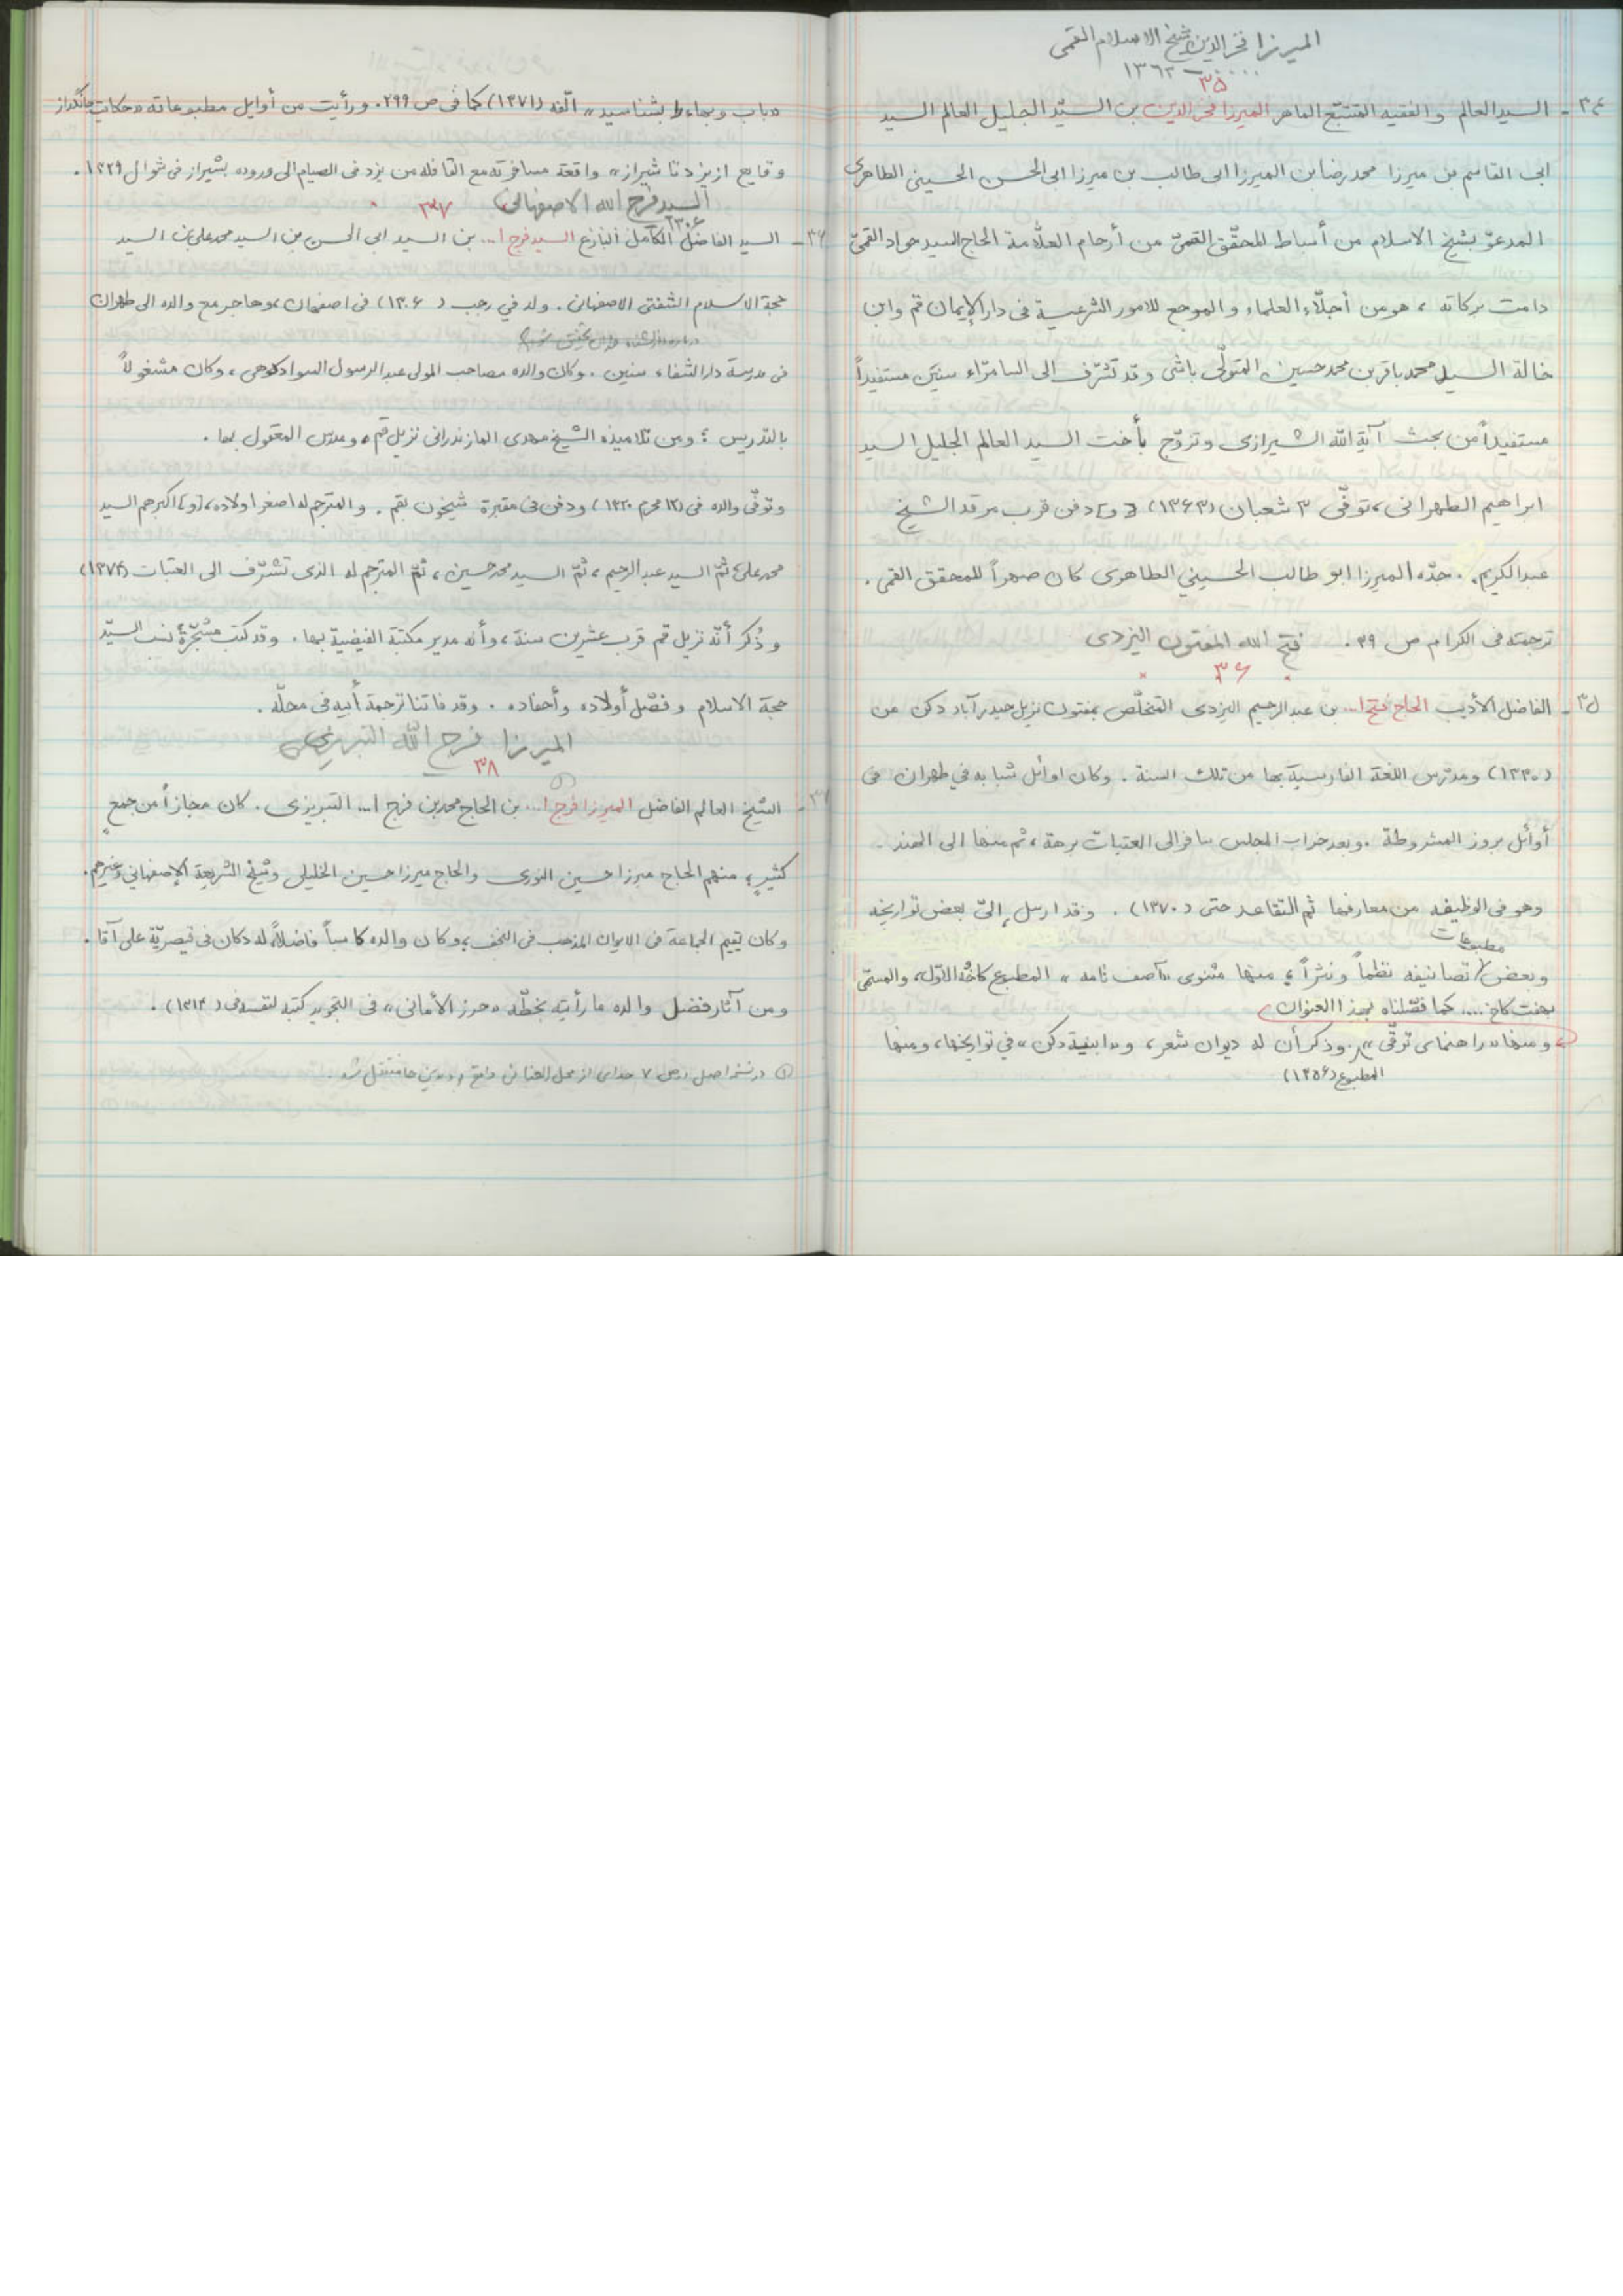 الميرزا فخر الدين شيخ الاسلام القمى
٠٠٠٠ - ١٣٦٣
٣٥
٣٤ - السيد العالم والفقيه المتتبّع الماهر الميرزا فخر الدين بن السيّد الجليل العالم السيد
ابى القاسم بن ميرزا محمد رضا بن الميرزا ابى طالب بن ميرزا ابى الحسن الحسينى الطاهرى
المدعوّ بشيخ الاسلام من أسباط المحقّق القمىّ من أرحام العلّامة الحاج السيد جواد القمىّ
دامت بركاته ، هو من أجلّاء العلماء والمرجع للامور الشرعية فى دار الإيمان قم وابن
خالة السيد محمد باقر بن محمد حسين المتولّى باشى وقد تشرّف الى السامرّاء سنين مستفيداً
مستفيداً من بحث آية الله الشيرازى وتزوّج بأخت السيد العالم الجليل السيد
ابراهيم الطهرانى ، توفّى ٣ شعبان (١٣۶٣) [و] دفن قرب مرقد الشيخ
عبد الكريم . جدّه الميرزا ابو طالب الحسيني الطاهرى كان صهراً للمحقق القمى .
ترجمته فى الكرام ص ٣٩ . فتح الله المفتون اليزدى
٣۶
٣٥ - الفاضل الأديب الحاج فتح ا... بن عبد الرحيم اليزدى المتخلّص بمفتون نزيل حيدرآباد دكن من
(١٣٣٠) ومدرّس اللغة الفارسية بها من تلك السنة . وكان اوائل شبابه في طهران فى
أوائل بروز المشروطة . وبعد خراب المجلس سافر الى العتبات برهة ، ثم منها الى الهند .
وهو فى الوظيفه من معارفها ثم التقاعد حتى (١٣٧٠) . وقد ارسل إلىّ بعض تواريخه
مطبوعات
وبعض تصانيفه نظماً ونثراً ؛ منها مثنوى «آصف نامه» المطبوع كاخُه الاوّل ، والمسمّى
بهفت كاخ .... كما فصّلناه بهذا العنوان
ومنها «راهنماى ترقّى» . وذكر أن له ديوان شعر ، و«ابنية دكن» في تواريخها ، ومنها
المطبوع (١٣٥۶)
«باب وبهاء را بشناسيد» الّفه (١٣٧١) كما فى ص ٢٩٩ . ورأيت من أوايل مطبوعاته «حكايت جانگداز
وقايع از يزد تا شيراز» واقعة مسافرته مع القافله من يزد فى الصيام الى وروده بشيراز فى شوال ١٣٢٩ .
السيد فرج الله الاصفهانى ٣٧
١٣٠۶
٣۶ - السيد الفاضل الكامل البارع السيد فرج ا... بن السيد ابى الحسن بن السيد محمد على بن السيد
حجة الاسلام الشفتى الاصفهانى . ولد في رجب (١٣٠۶) فى اصفهان ، وهاجر مع والده الى طهران
فى مدرسة دار الشفاء سنين . وكان والده مصاحب المولى عبد الرسول السوادكوهى ، وكان مشغولاً
بالتدريس ؛ ومن تلاميذه الشيخ مهدى المازندرانى نزيل قم ، ومدرّس المعقول بها .
وتوفّى والده فى (١٢ محرم ١٣٣٠) ودفن فى مقبرة شيخون بقم . والمترجم له اصغر اولاده ، [و] اكبرهم السيد
محمد على ثمّ السيد عبد الرحيم ، ثمّ السيد محمد حسين ، ثمّ المترجم له الذى تشرّف الى العتبات (١٣٧٤)
وذُكر أنّه نزيل قم قرب عشرين سنة ، وأنه مدير مكتبة الفيضية بها . وقد كتب مشجّرة نسب السيّد
حجة الاسلام وفصّل أولاده وأحفاده . وقد فاتنا ترجمة أبيه فى محلّه .
الميرزا فرج الله التبريزى
٣٨
٣٧ - الشيخ العالم الفاضل الميرزا فرج ا... بن الحاج محمد بن فرج ا... التبريزى . كان مجازاً من جمعٍ
كثيرٍ ، منهم الحاج ميرزا حسين النورى والحاج ميرزا حسين الخليلى وشيخ الشريعة الإصفهاني وغيرهم .
وكان يقيم الجماعة فى الايوان المذهب فى النجف ، وكان والده كاسباً فاضلاً له دكان فى قيصريّة على آقا .
ومن آثار فضل والده ما رأيته بخطّه «حرز الأمانى» فى التجويد كتبه لنفسه فى (١٣١٣) .
① در نسخه اصل در ص ٧